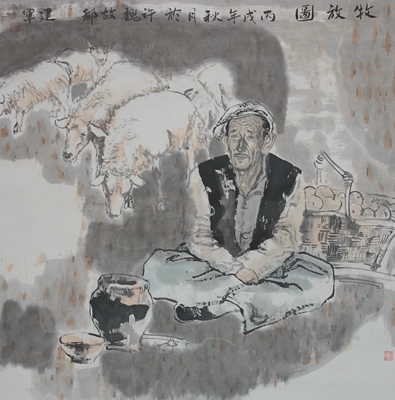 牧放圖 丙戌年秋月於許魏故都 建軍